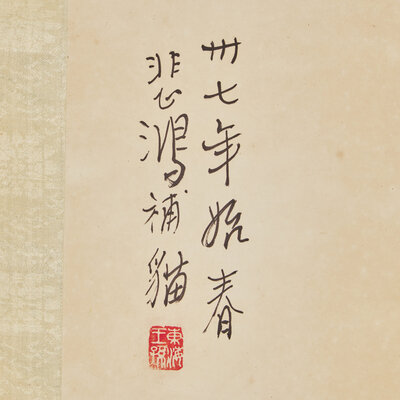 卅七年始春
悲鴻補貓
東海
王孫